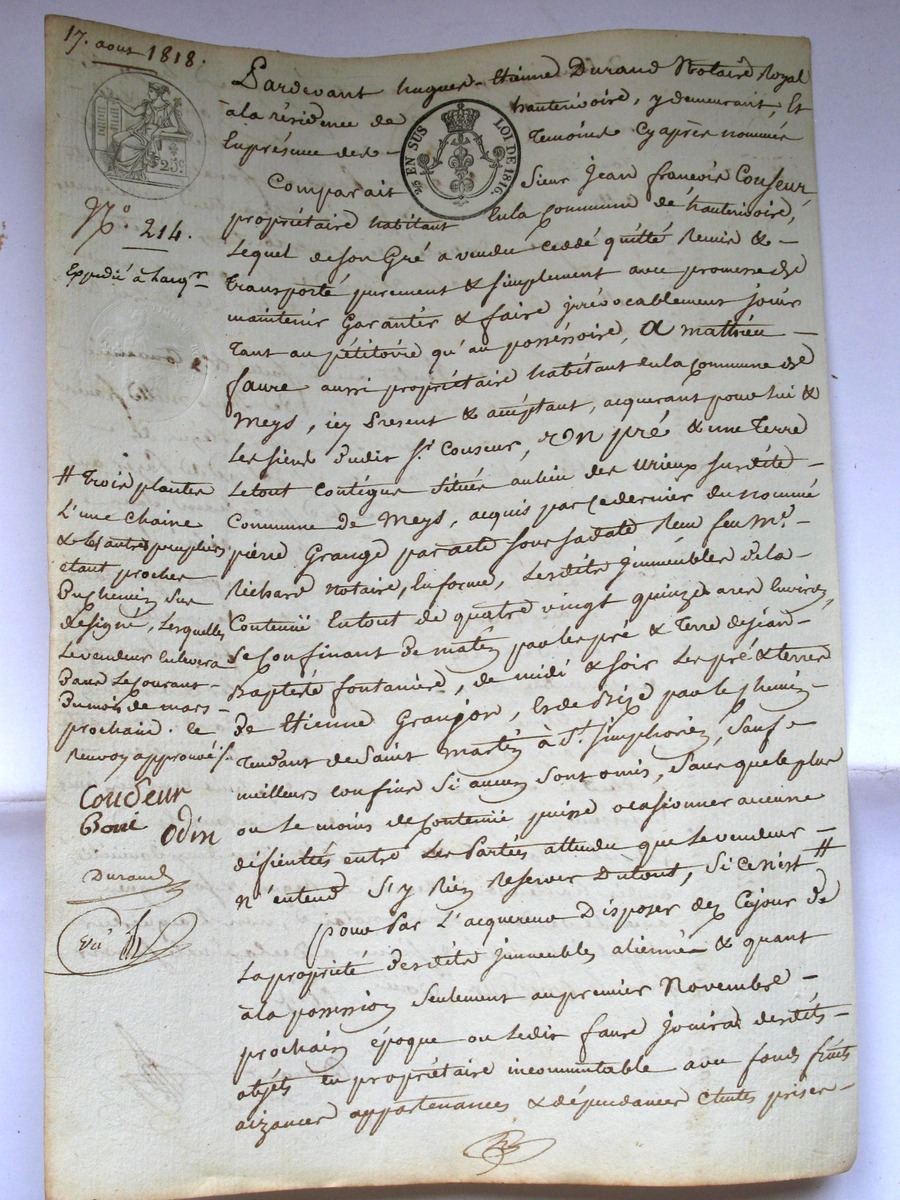 17. aout 1818.
Pardevant hugues-Etienne Durand Notaire Royal
à la résidence de hauterivoire, y demeurant, Et
En présence des Temoins Cy après nommés
25 EN SUS LOI DE 1816.
25c.
Comparait Sieur Jean francois Couseur
N.o 214.
propriétaire habitant En la Commune de hauterivoire,
Lequel de son Gré a vendu ceddé quitté Remis & -
Expedié à l'acq.r
transporté purement & simplement avec promesse de
maintenir Garantir & faire irrévocablement jouir
Tant au pétitoire qu'au posséssoire, A mathieu -
faure aussi propriétaire habitant en la Commune de
Meys, icy Présent & acceptant, acquerant pour lui &
Les siens Dudit S.r Couseur, Un pré & une Terre
Le tout Contigus Situés au lieu des Urieux Susdite -
Commune de Meys, acquis par Ce dernier du nommé
pierre Grange par acte sous sa date Reçu feu M.e -
Richard Notaire, En forme, Lesdits immeubles de la
Contenue En tout de quatre vingt quinze ares Environ,
Se Confinant De matin par les pré & Terre de jean -
Baptiste fontanière, de midi & soir Les pré & terres
De Etienne Granjon, & de Bize par le Chemin -
Tendant de Saint Martin à S.t Simphorien, Sauf -
meilleurs Confins Si aucuns Sont omis, Sans que le plus
ou Le moins de Contenue puisse ocasionner aucune
dificultés entre Les Parties attendu que Le vendeur -
N'entend S'y Rien Reserver Du tout, Si ce n'est #
# Trois plantes
L'une Chaine
& les autres peupliers
etant proches
Du chemin Sus
désigné, Lesquelles
Le vendeur Enlevera
Dans Le Courant -
Du mois de mars
prochain. le
renvoy approuvé
Couseur
Odin
Durand
pour Par L'acquereur Disposer dez Cejour De
La propriété Desdits immeubles aliénés & quant
à la possession Seulement au premier Novembre -
prochain époque ou Ledit faure Jouira desdits -
objets en propriétaire incommutable avec fonds fruits
aizances appartenances & dépendances